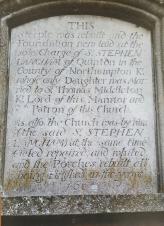 THIS
Steeple was rebuilt and the
Foundation new laid at the
sole Charge of Sr. STEPHEN
LANGHAM of Quinton in the
County of Northampton Kt.
whose only Daughter was Mar
ried to Sr. Thomas Middleton
Kt. Lord of this Mannor and
Patron of this Church.
As also the Church was by him
the said Sr. STEPHEN
LANGHAM at the same time
repaired, and
and the Porches rebuilt all
being in the year